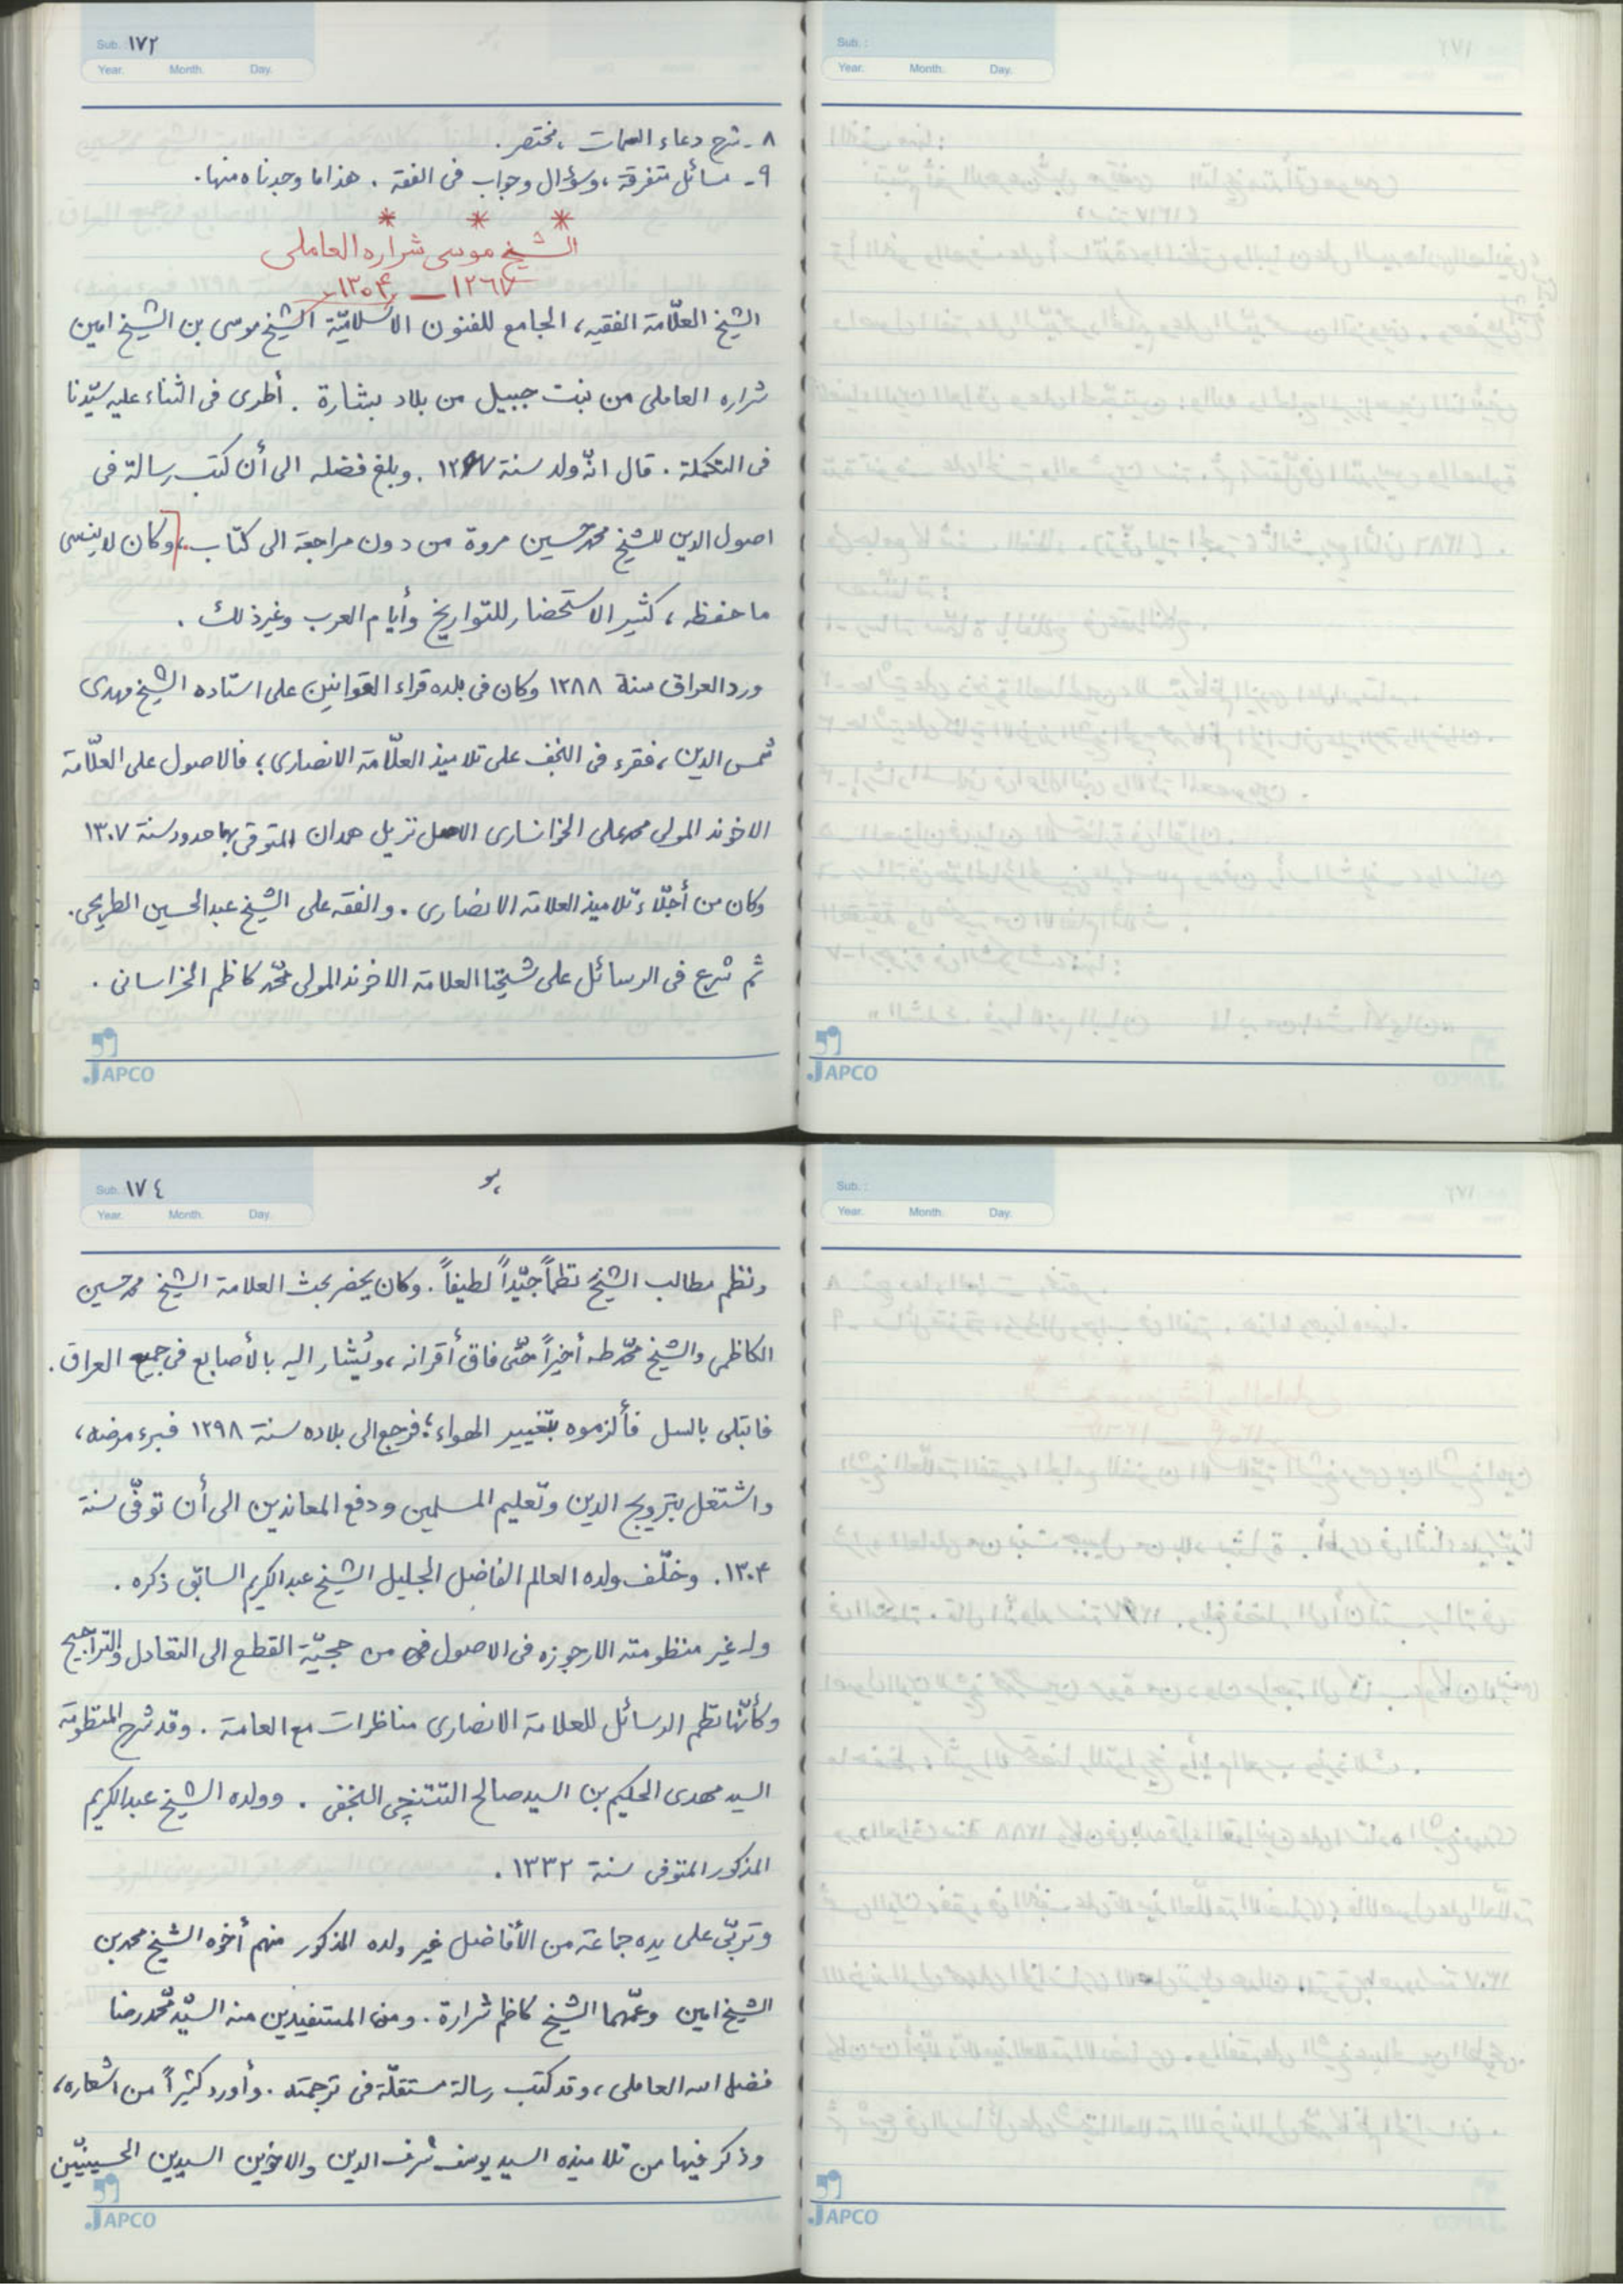 Sub. ١٧٢
Year. Month. Day.
٨ - شرح دعاء السمات ، مختصر .
٩ - مسائل متفرقة ، وسؤال وجواب فى الفقه . هذا ما وجدناه منها .
* * *
الشيخ موسى شراره العاملى
١٢٦٧ — ١٣٠٤
الشيخ العلّامة الفقيه ، الجامع للفنون الاسلاميّة الشيخ موسى بن الشيخ امين
شراره العاملى من بنت جبيل من بلاد بشارة . أطرى فى الثناء عليه سيّدنا
فى التكملة . قال انّه ولد سنة ١٢٦٧ . وبلغ فضله الى أن كتب رسالة فى
اصول الدين للشيخ محمد حسين مروة من دون مراجعة الى كتاب ، وكان لا ينسى
ما حفظه ، كثير الاستحضار للتواريخ وأيام العرب وغير ذلك .
ورد العراق سنة ١٢٨٨ وكان فى بلده قراء القوانين على استاده الشيخ مهدى
شمس الدين ، فقرء فى النجف على تلاميذ العلّامة الانصارى ؛ فالاصول على العلّامة
الاخوند المولى محمد على الخوانسارى الاصل نزيل همدان المتوفى بها حدود سنة ١٣٠٧
وكان من أجلّاء تلاميذ العلامة الانصارى . والفقه على الشيخ عبد الحسين الطريحى .
ثم شرع فى الرسائل على شيخنا العلامة الاخوند المولى محمّد كاظم الخراسانى .
JAPCO
Sub. :
Year. Month. Day.
JAPCO
Sub. ١٧٤
Year. Month. Day.
ونظم مطالب الشيخ نظماً جيّداً لطيفاً . وكان يحضر بحث العلامة الشيخ محمد حسين
الكاظمى والشيخ محمّد طه أخيراً حتّى فاق أقرانه ، ويُشار اليه بالأصابع فى جميع العراق .
فابتلى بالسل فألزموه بتغيير الهواء ؛ فرجع الى بلاده سنة ١٢٩٨ فبرء مرضه ،
واشتغل بترويج الدين وتعليم المسلمين ودفع المعاندين الى أن توفّى سنة
١٣٠٤ . وخلّف ولده العالم الفاضل الجليل الشيخ عبد الكريم السابق ذكره .
وله غير منظومته الارجوزه فى الاصول من حجيّة القطع الى التعادل والتراجيح
وكأنّها نظم الرسائل للعلامة الانصارى مناظرات مع العامة . وقد شرح المنظومة
السيد مهدى الحكيم بن السيد صالح النجفى . وولده الشيخ عبد الكريم
المذكور المتوفى سنة ١٣٣٢ .
وتربّى على يده جماعة من الأفاضل غير ولده المذكور منهم أخوه الشيخ محمد بن
الشيخ امين وعمّهما الشيخ كاظم شرارة . ومن المستفيدين منه السيّد محمّد رضا
فضل الله العاملى ، وقد كتب رسالة مستقلّة فى ترجمته . وأورد كثيراً من اشعاره ،
وذكر فيها من تلاميذه السيد يوسف شرف الدين والاخوين السيدين الحسينيّين
JAPCO
Sub. :
Year. Month. Day.
JAPCO